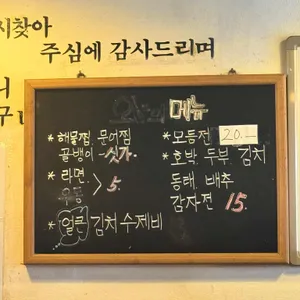 시찾아
주심에 감사드리며
니
메뉴
* 해물찜 문어찜
골뱅이 - 싯가
* 라면
우동 > 5.
* 얼큰 김치수제비
* 모듬전 20.-
* 호박 두부 김치
동태 배추
감자전 15.